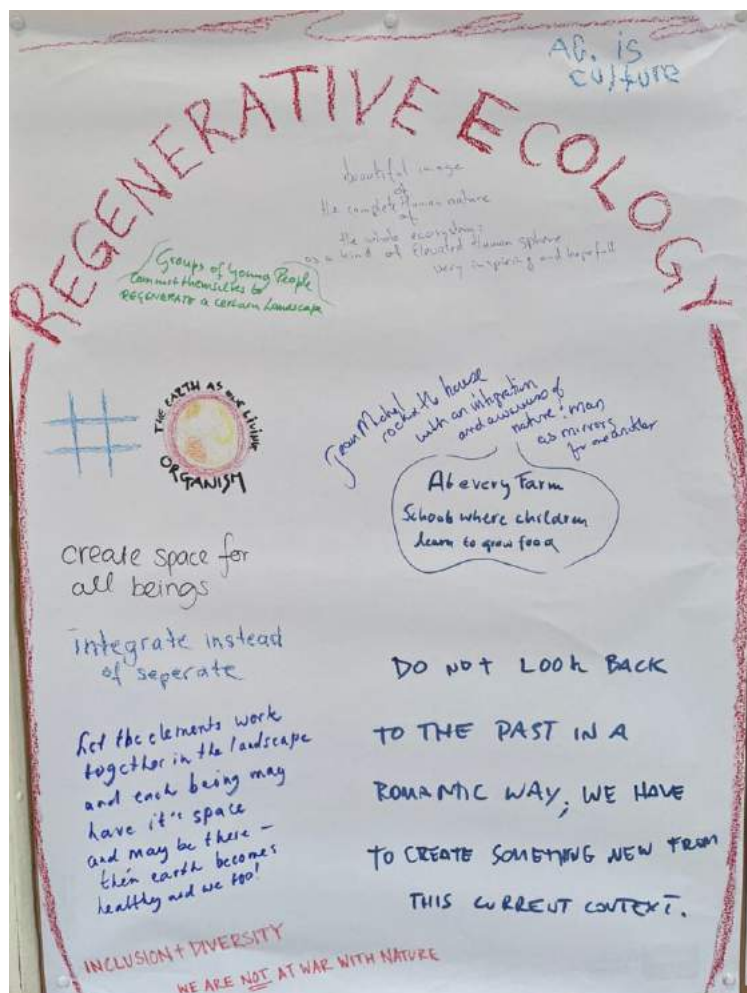 AG. is
culture
REGENERATIVE ECOLOGY
beautiful image
of
the complete Human nature
of
the whole ecosystem:
as a kind of Elevated Human sphere
very inspiring and hopefull
Groups of Young People
commit themselves to
REGENERATE a certain Landscape
THE EARTH AS OUR LIVING
ORGANISM
house
with an integration
and awareness of
nature : man
as mirrors
for one another
At every Farm
Schools where children
learn to grow food
create space for
all beings
integrate instead
of seperate
Let the elements work
together in the landscape
and each being may
have it's space
and may be there –
then earth becomes
healthy and we too!
DO NOT LOOK BACK
TO THE PAST IN A
ROMANTIC WAY, WE HAVE
TO CREATE SOMETHING NEW FROM
THIS CURRENT CONTEXT.
INCLUSION + DIVERSITY
WE ARE NOT AT WAR WITH NATURE